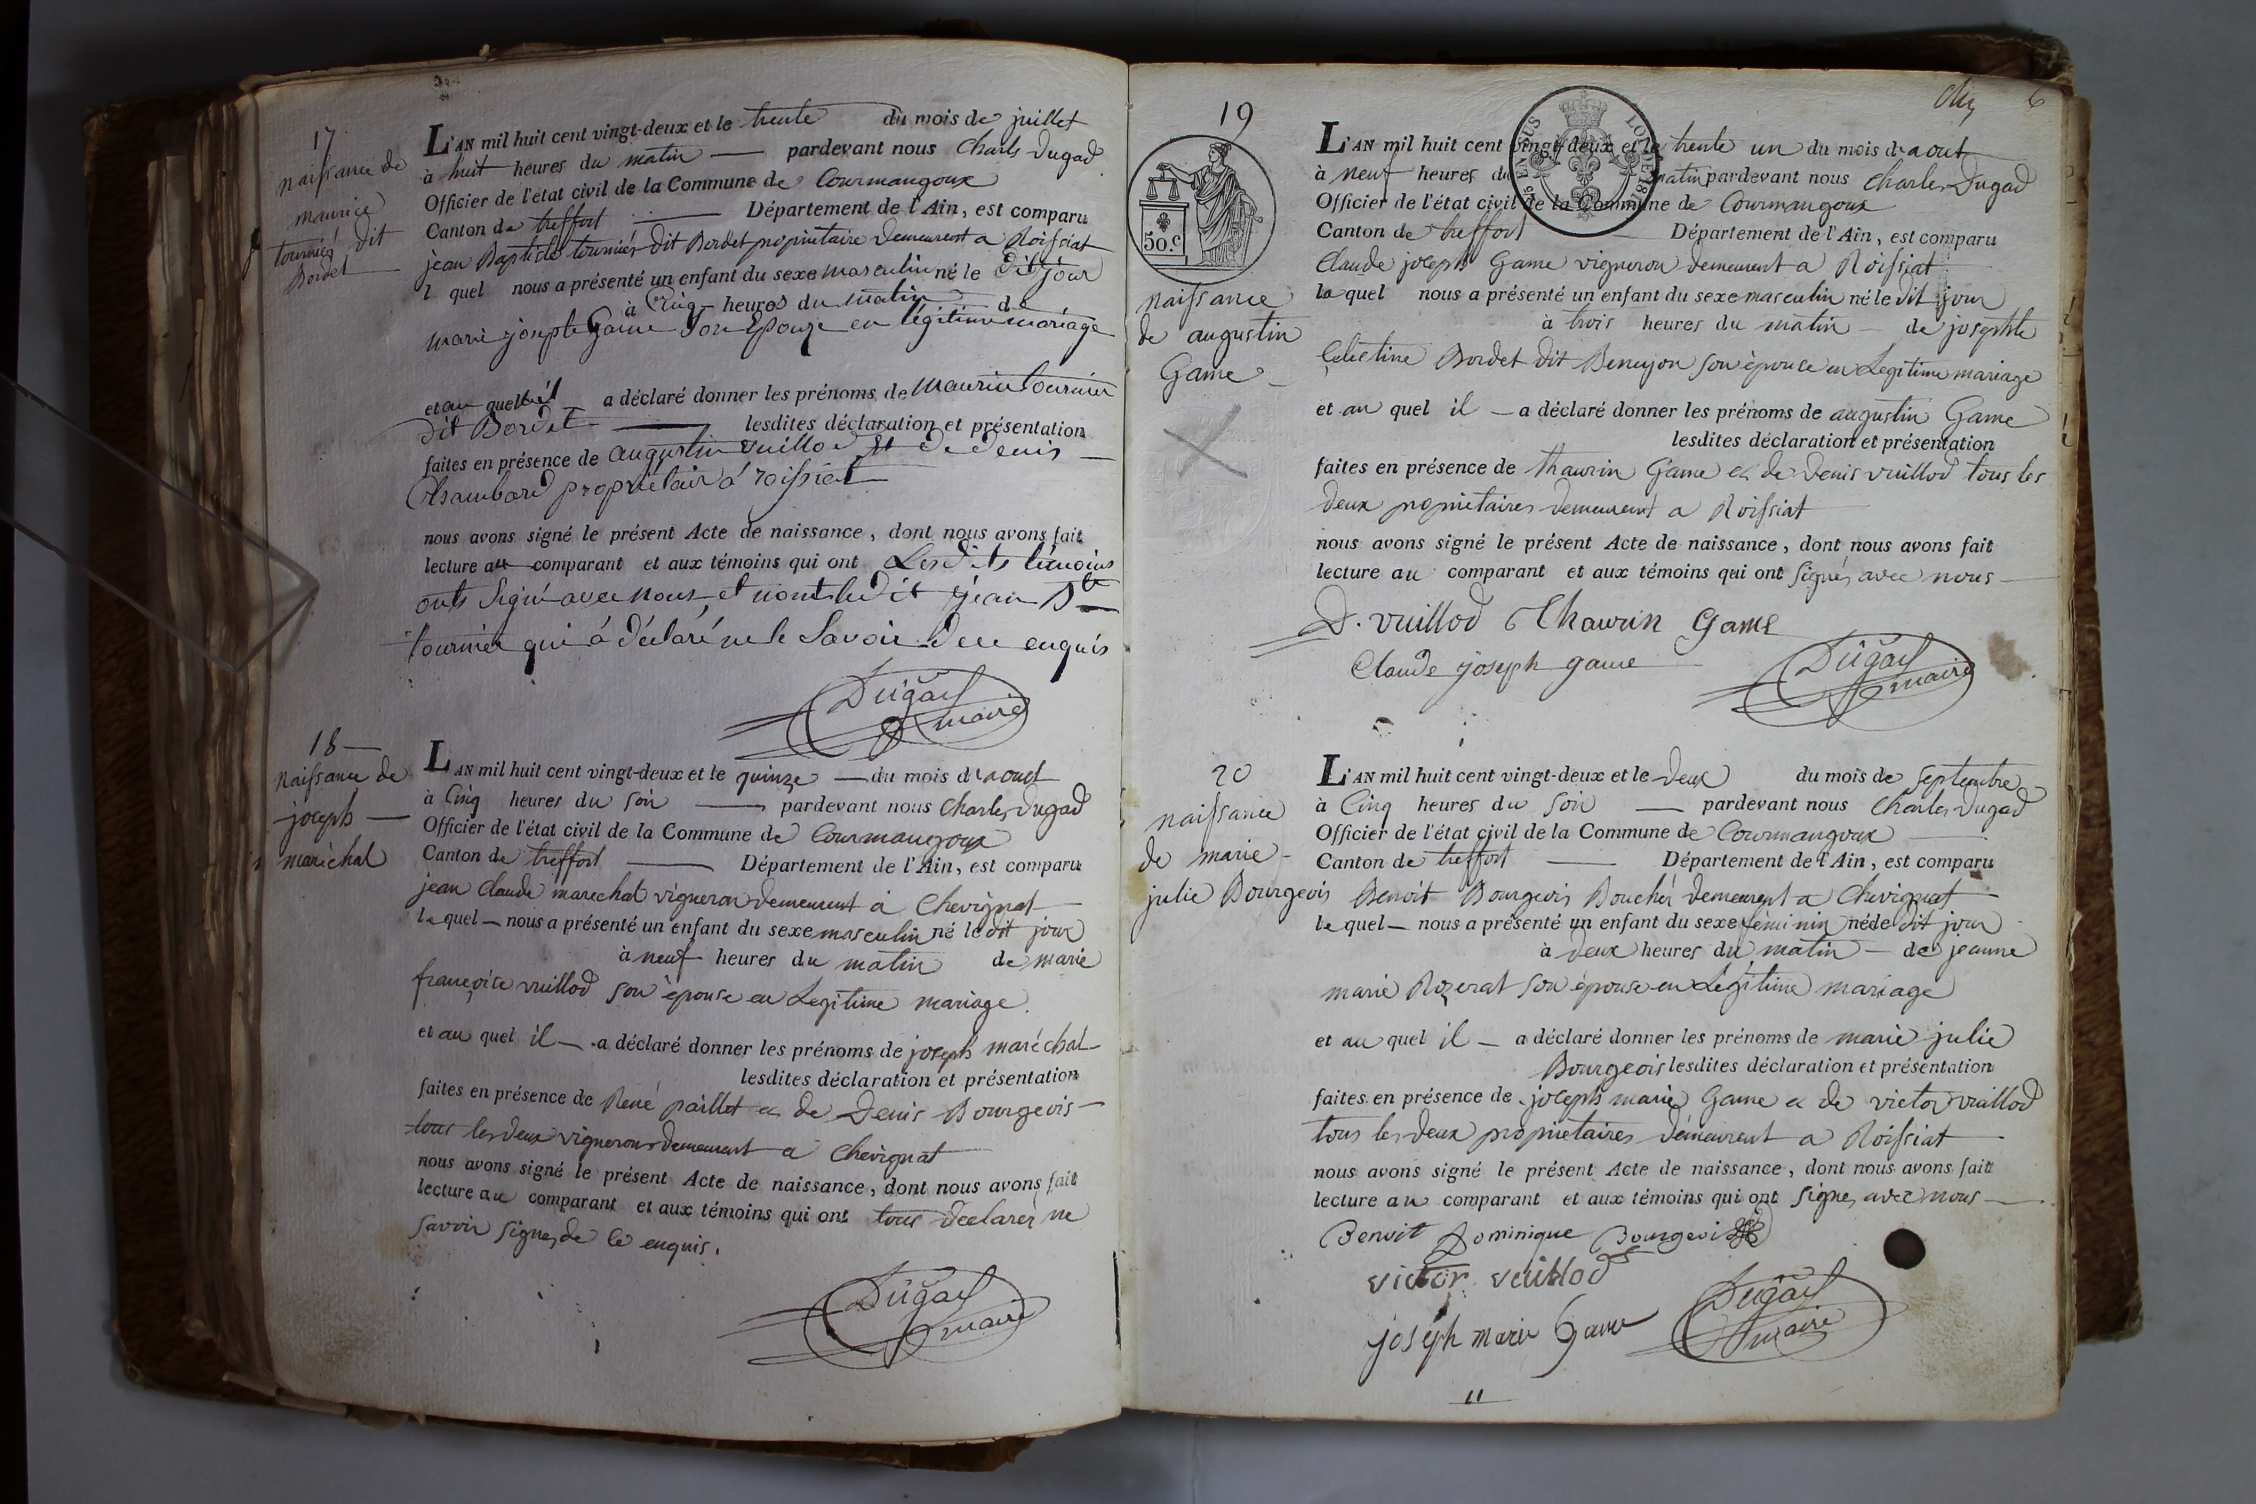 17
naissance de
maurice
tournier dit
Bordet
L'AN mil huit cent vingt-deux et le trente du mois de juillet
à huit heures du matin pardevant nous Charles Dugad
Officier de l'état civil de la Commune de Courmangoux
Canton de treffort Département de l'Ain, est comparu
jean Baptiste tournier dit Bordet propriétaire demeurent a Roissiat
l quel nous a présenté un enfant du sexe masculin né le dit jour
à Cinq heures du matin de
marie josephe Game son Epouze en légitime mariage
et au quel il a déclaré donner les prénoms de maurice tournier
dit Bordet lesdites déclaration et présentation
faites en présence de augustin vuillod et de denis
Chambard propriétair à roissiat
nous avons signé le présent Acte de naissance, dont nous avons fait
lecture au comparant et aux témoins qui ont Les dits témoins
onts signé avec nous et nont le dit jean Bte
tournier qui à déclaré ne le savoir de ce enquis
Dugad
maire
18
naissance de
joseph
maréchal
L'AN mil huit cent vingt-deux et le quinze du mois d'aout
à Cinq heures du soir pardevant nous Charles Dugad
Officier de l'état civil de la Commune de Courmangoux
Canton de treffort Département de l'Ain, est comparu
jean Claude marechal vigneron demeurent à Chevignat
le quel nous a présenté un enfant du sexe masculin né le dit jour
à neuf heures du matin de marie
françoise vuillod son épouse en Legitime mariage.
et au quel il a déclaré donner les prénoms de joseph maréchal
lesdites déclaration et présentation
faites en présence de René paillet et de Denis Bourgeois
tous les deux vignerons demeurent a Chevignat
nous avons signé le présent Acte de naissance, dont nous avons fait
lecture au comparant et aux témoins qui ont tous declarér ne
savoir signer de ce enquis.
Dugad
maire
6
19
50.c
LOI DE 1816
naissance
de augustin
Game
L'AN mil huit cent vingt-deux et le trente un du mois d'aout
à neuf heures du matin pardevant nous Charles Dugad
Officier de l'état civil de la Commune de Courmangoux
Canton de treffort Département de l'Ain, est comparu
Claude joseph Game vigneron demeurent a Roissiat
le quel nous a présenté un enfant du sexe masculin né le dit jour
à trois heures du matin de josephte
Celestine Bordet dit Benuyon son épouse en Legitime mariage
et au quel il a déclaré donner les prénoms de augustin Game
lesdites déclaration et présentation
faites en présence de thaurin Game et de Denis vuillod tous les
deux propriétaires demeurent a Roissiat
nous avons signé le présent Acte de naissance, dont nous avons fait
lecture au comparant et aux témoins qui ont signés avec nous
D. vuillod Thaurin Game
Claude joseph game
Dugad
maire
20
naissance
de marie
julie Bourgeois
L'AN mil huit cent vingt-deux et le Deux du mois de septembre
à Cinq heures du soir pardevant nous Charles Dugad
Officier de l'état civil de la Commune de Courmangoux
Canton de treffort Département de l'Ain, est comparu
Benoit Bourgeois Boucher demeurent a Chevignat
le quel nous a présenté un enfant du sexe féminin née le dit jour
à deux heures du matin de jeanne
marie Rozerat son épouse en Légitime mariage
et au quel il a déclaré donner les prénoms de marie julie
Bourgeois lesdites déclaration et présentation
faites en présence de joseph marie Game et de victor vuillod
tous les deux propriétaires demeurent a Roissiat
nous avons signé le présent Acte de naissance, dont nous avons fait
lecture au comparant et aux témoins qui ont signes avec nous
Benoit Dominique Bourgeois
victor vuillod
joseph marie Game
Dugad
maire
11